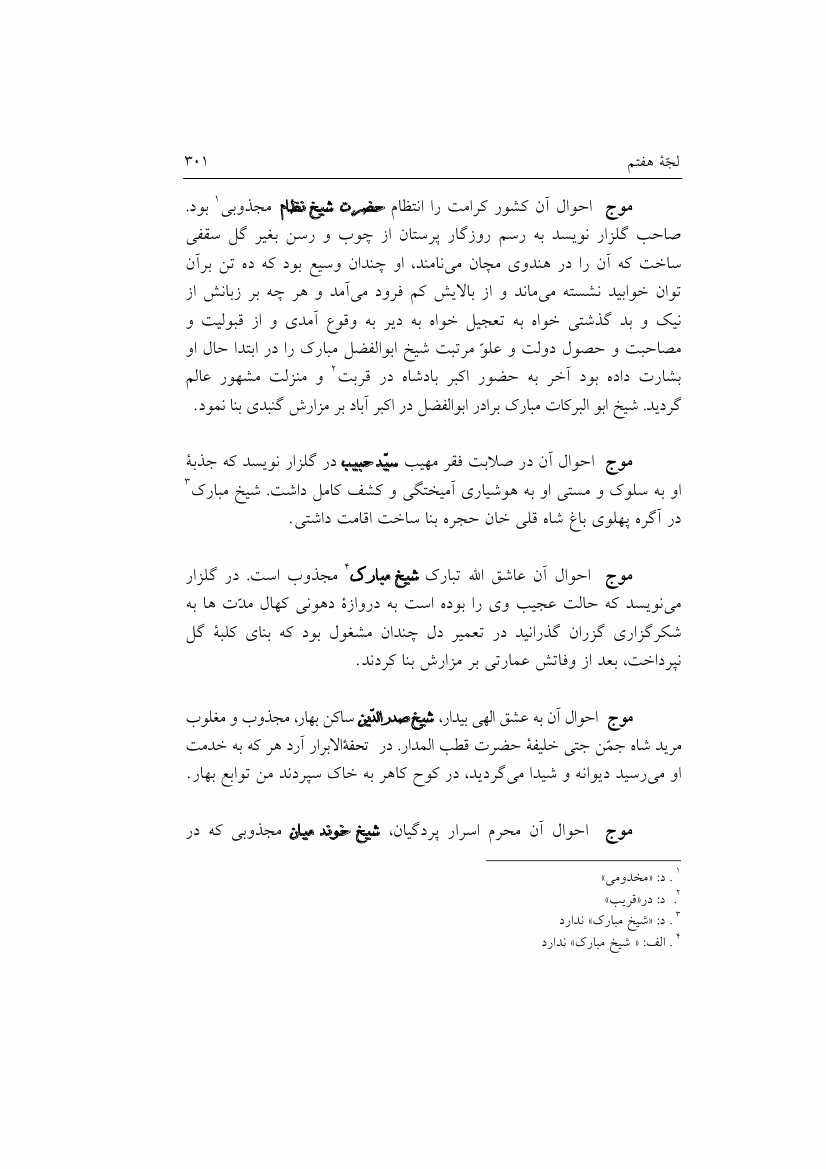 لجّهٔ هفتم ۳۰۱
موج احوال آن کشور کرامت را انتظام حضرت شیخ نظام مجذوبی۱ بود.
صاحب گلزار نویسد به رسم روزگار پرستان از چوب و رسن بغیر گل سقفی
ساخت که آن را در هندوی مچان می‌نامند، او چندان وسیع بود که ده تن برآن
توان خوابید نشسته می‌ماند و از بالایش کم فرود می‌آمد و هر چه بر زبانش از
نیک و بد گذشتی خواه به تعجیل خواه به دیر به وقوع آمدی و از قبولیت و
مصاحبت و حصول دولت و علوّ مرتبت شیخ ابوالفضل مبارک را در ابتدا حال او
بشارت داده بود آخر به حضور اکبر بادشاه در قربت۲ و منزلت مشهور عالم
گردید. شیخ ابو البرکات مبارک برادر ابوالفضل در اکبر آباد بر مزارش گنبدی بنا نمود.
موج احوال آن در صلابت فقر مهیب سیّد حبیب در گلزار نویسد که جذبهٔ
او به سلوک و مستی او به هوشیاری آمیختگی و کشف کامل داشت. شیخ مبارک۳
در آگره پهلوی باغ شاه قلی خان حجره بنا ساخت اقامت داشتی.
موج احوال آن عاشق الله تبارک شیخ مبارک۴ مجذوب است. در گلزار
می‌نویسد که حالت عجیب وی را بوده است به دروازهٔ دهونی کهال مدّت ها به
شکرگزاری گزران گذرانید در تعمیر دل چندان مشغول بود که بنای کلبهٔ گل
نپرداخت، بعد از وفاتش عمارتی بر مزارش بنا کردند.
موج احوال آن به عشق الهی بیدار، شیخ صدرالدّین ساکن بهار، مجذوب و مغلوب
مرید شاه جمّن جتی خلیفهٔ حضرت قطب المدار. در تحفةالابرار آرد هر که به خدمت
او می‌رسید دیوانه و شیدا می‌گردید، در کوح کاهر به خاک سپردند من توابع بهار.
موج احوال آن محرم اسرار پردگیان، شیخ خوند میان مجذوبی که در
۱. د: «مخدومی»
۲. د: در«قریب»
۳. د: «شیخ مبارک» ندارد
۴. الف: « شیخ مبارک» ندارد